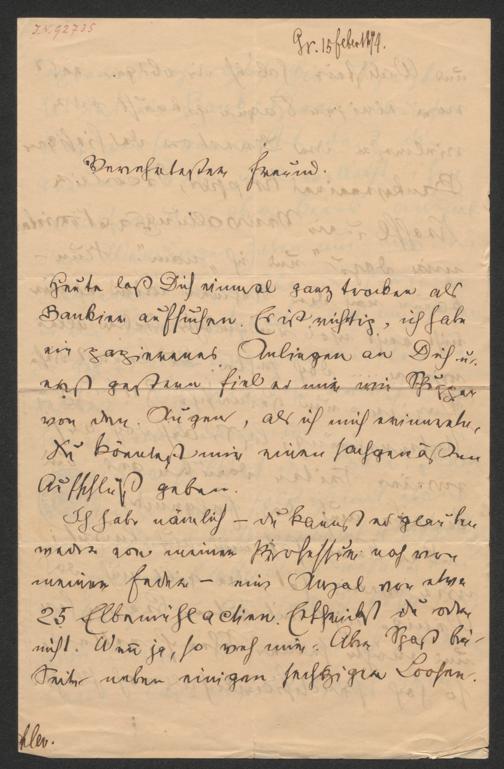 I.N. 92735
Gr. 15 feber 1871.
Verehrtester Freund.
Heute laß Dich einmal ganz trocken als
Bankier aufsuchen. Es ist richtig, ich habe
ein papierenes Anliegen an Dich u.
erst gestern fiel es mir wie Schuppen
von den Augen, als ich mich erinnerte,
Du könntest mir einen sachgemäßen
Aufschluß geben.
Ich habe nämlich – du kannst es glauben
weder von meiner Professur noch von
meiner Feder – eine Anzal von etwa
25 Elbemühlactien. Erschrickst du oder
nicht. Wenn ja, so weh mir. Aber Spaß bei-
Seite neben einigen sechziger Loosen.